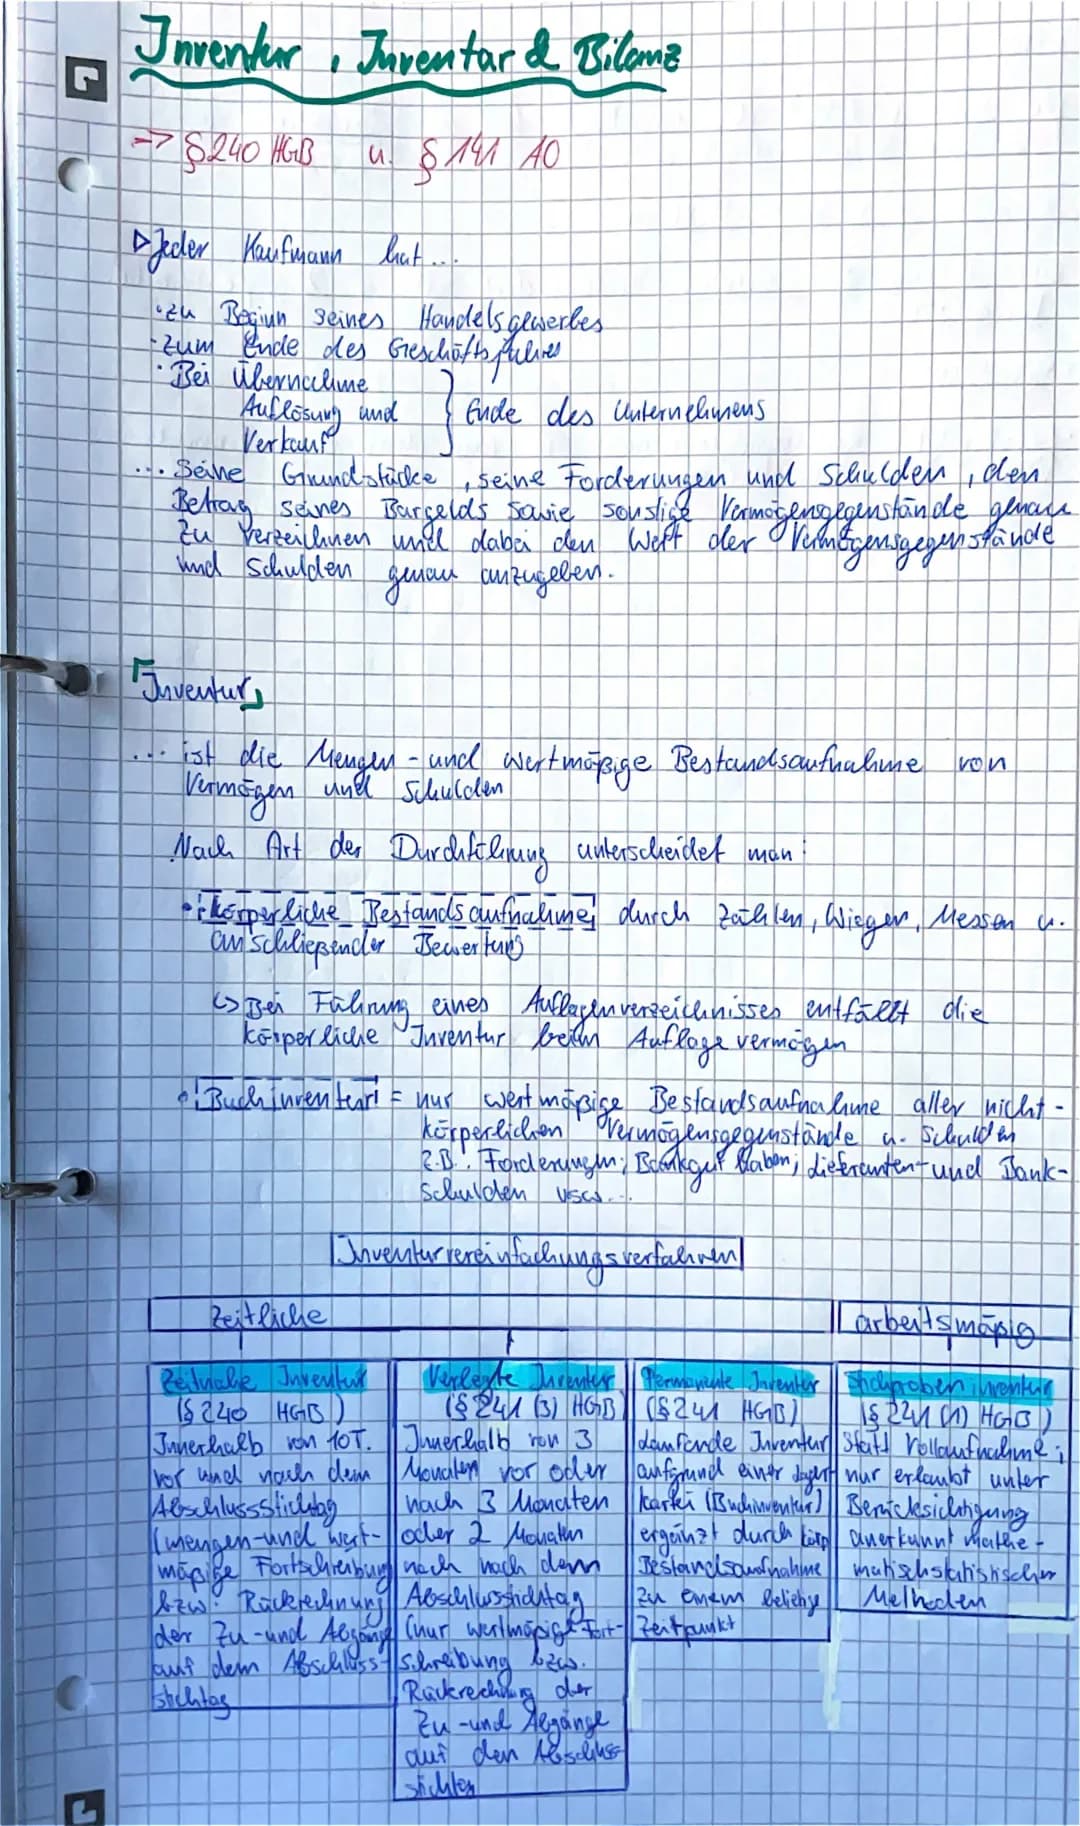 Inventur, Inventar & Bilanz
=> § 240 HGB u. § 141 AO
▷ Jeder Kaufmann hat ...
• zu Beginn seines Handelsgewerbes
• zum Ende des Geschäftsjahres
• Bei Übernahme
Auflösung und } Ende des Unternehmens
Verkauf
... Seine Grundstücke, seine Forderungen und Schulden, den
Betrag seines Bargelds sowie sonstige Vermögensgegenstände genau
zu verzeichnen und dabei den Wert der Vermögensgegenstände
und Schulden genau anzugeben.
Inventur
... ist die Mengen- und wertmäßige Bestandsaufnahme von
Vermögen und Schulden
Nach Art der Durchführung unterscheidet man:
• körperliche Bestandsaufnahme durch Zählen, Wiegen, Messen u.
anschließender Bewertung
↳ Bei Führung eines Auflagenverzeichnisses entfällt die
körperliche Inventur beim Auflagevermögen
• Buchinventur = nur wertmäßige Bestandsaufnahme aller nicht-
körperlichen Vermögensgegenstände u. Schulden
z.B. Forderungen; Bankguthaben; Lieferanten- und Bank-
schulden usw...
Inventurvereinfachungsverfahren
Zeitliche
arbeitsmäßig
Zeitnahe Inventur
(§ 240 HGB)
Innerhalb von 10T.
vor und nach dem
Abschlussstichtag
(mengen- und wert-
mäßige Fortschreibung
bzw. Rückrechnung
der Zu- und Abgänge
auf dem Abschluss-
stichtag
Verlegte Inventur
(§ 241 (3) HGB)
Innerhalb von 3
Monaten vor oder
nach 3 Monaten
oder 2 Monaten
nach nach dem
Abschlussstichtag
(nur wertmäßige Fort-
schreibung bzw.
Rückrechnung der
Zu- und Abgänge
auf den Abschluss
stichtag
Permanente Inventur
(§ 241 HGB)
laufende Inventur
aufgrund einer Lager-
kartei (Buchinventur)
ergänzt durch körp
Bestandsaufnahme
zu einem beliebige
Zeitpunkt
Stichprobeninventur
(§ 241 (1) HGB)
Statt Vollaufnahme;
nur erlaubt unter
Berücksichtigung
anerkannt mathe-
matischstatistischer
Methoden